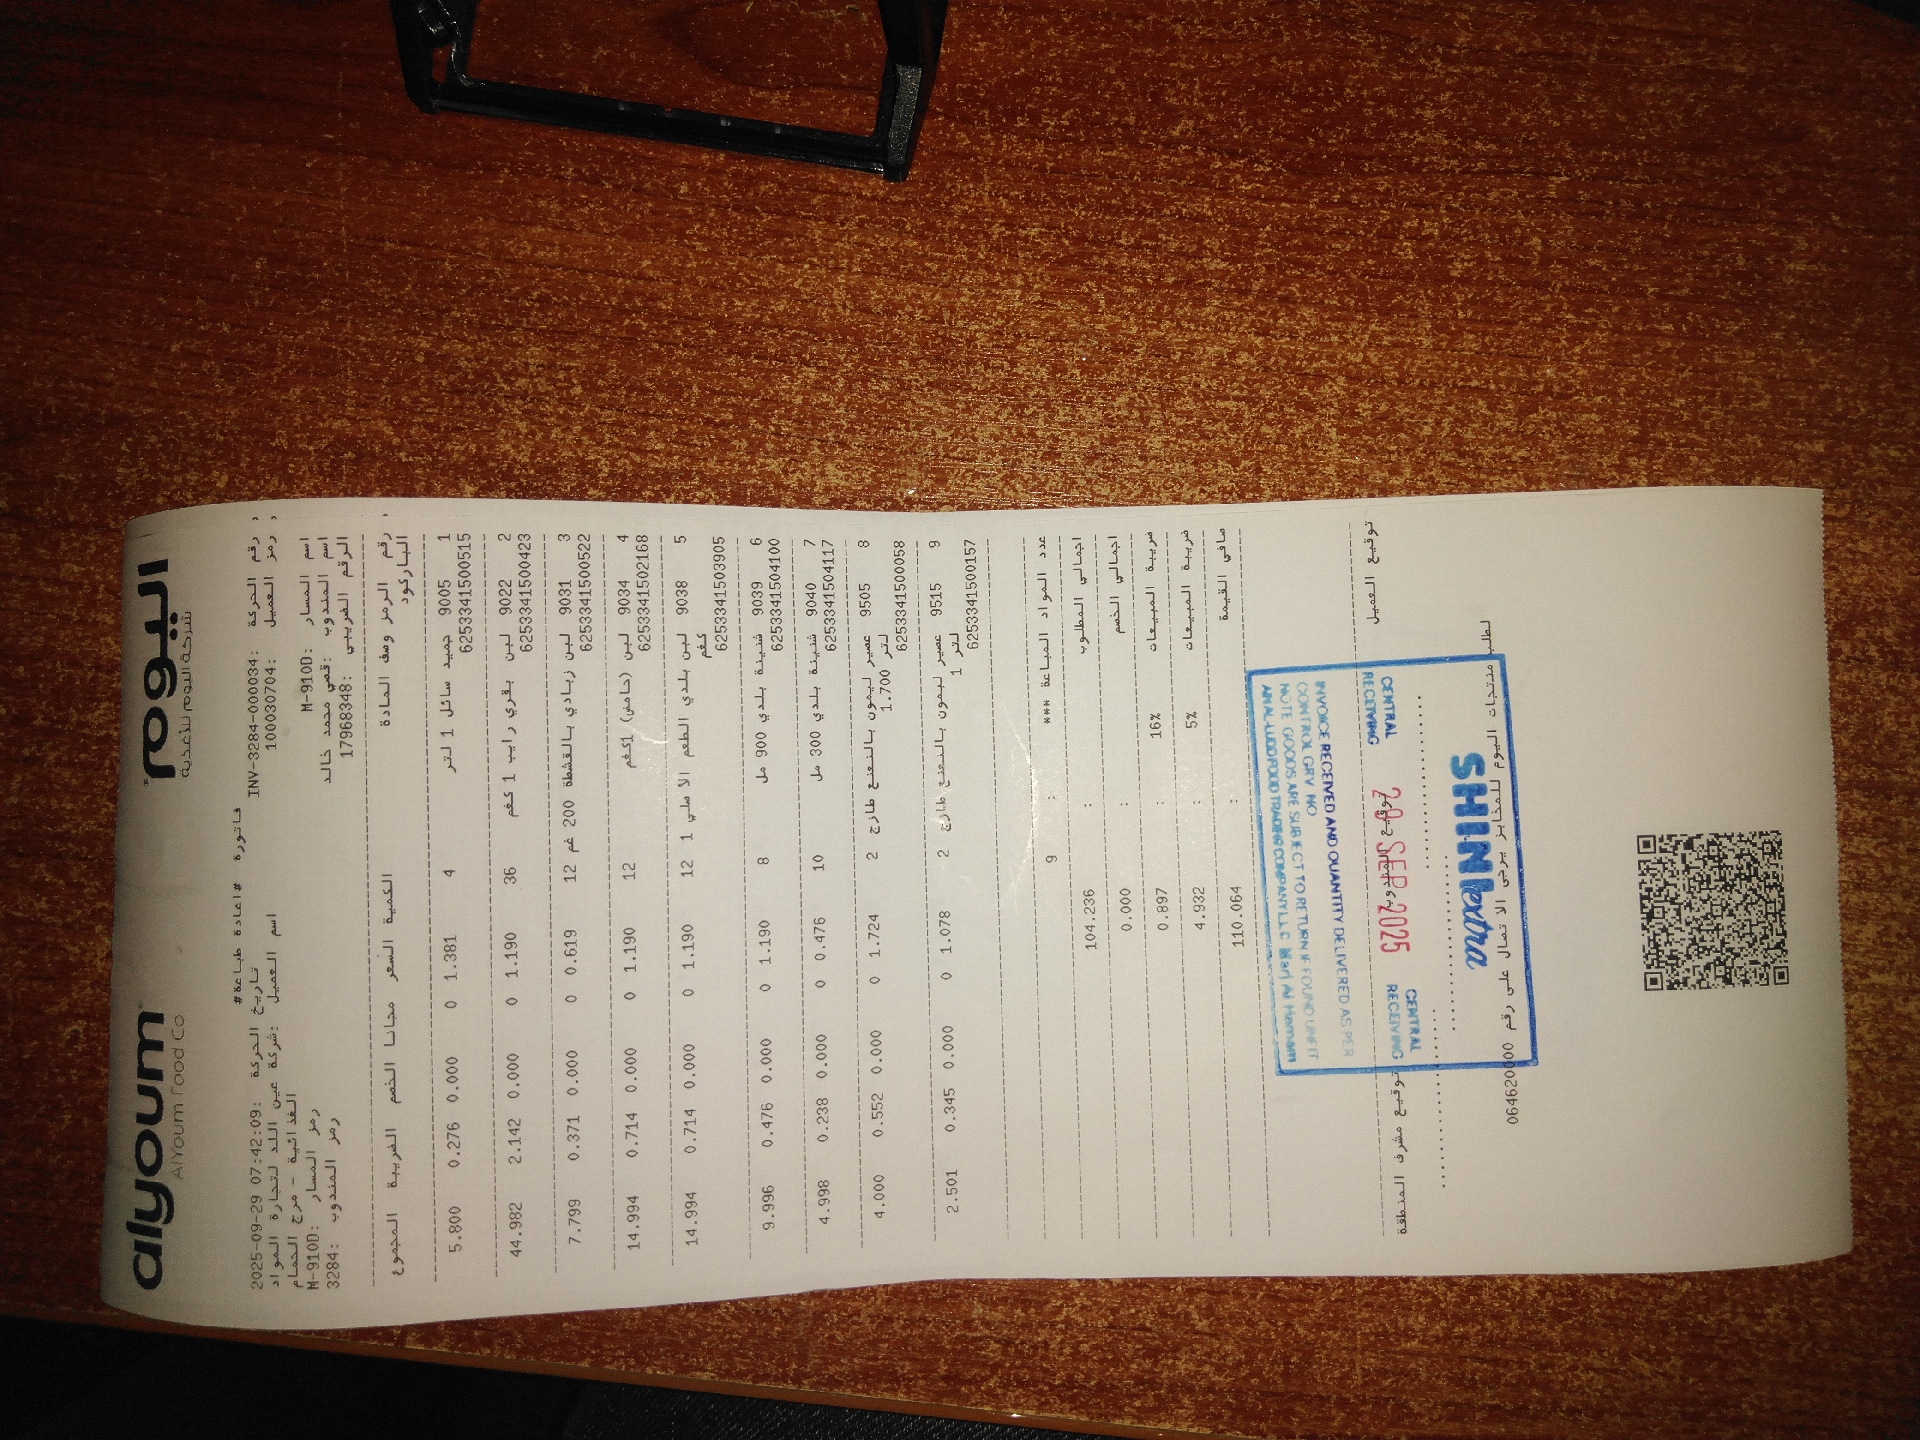 alyoum اليوم
AlYoum Food Co شركة اليوم للأغذية
فاتورة #اعادة طباعة#
رقم الحركة: INV-3284-000034 تاريخ الحركة: 2025-09-29 07:42:09
رمز العميل: 100030704 اسم العميل: شركة عين اللد لتجارة المواد
الغذائية - مرج الحمام
اسم المسار: M-910D رمز المسار: M-910D
اسم المندوب: قصي محمد خالد رمز المندوب: 3284
الرقم الضريبي: 17968348
رقم الرمز وصف المادة الكمية السعر مجانا الخصم الضريبة المجموع
الباركود
1 9005 جميد سائل 1 لتر 4 1.381 0 0.000 0.276 5.800
6253341500515
2 9022 لبن بقري رايب 1 كغم 36 1.190 0 0.000 2.142 44.982
6253341500423
3 9031 لبن زبادي بالقشطة 200 غم 12 0.619 0 0.000 0.371 7.799
6253341500522
4 9034 لبن (حامض) 1كغم 12 1.190 0 0.000 0.714 14.994
6253341502168
5 9038 لبن بلدي الطعم الاصلي 1 12 1.190 0 0.000 0.714 14.994
كغم
6253341503905
6 9039 شنينة بلدي 900 مل 8 1.190 0 0.000 0.476 9.996
6253341504100
7 9040 شنينة بلدي 300 مل 10 0.476 0 0.000 0.238 4.998
6253341504117
8 9505 عصير ليمون بالنعنع طازج 2 1.724 0 0.000 0.552 4.000
1.700 لتر
6253341500058
9 9515 عصير ليمون بالنعنع طازج 2 1.078 0 0.000 0.345 2.501
1 لتر
6253341500157
عدد المواد المباعة *** : 9
اجمالي المطلوب : 104.236
اجمالي الخصم : 0.000
ضريبة المبيعات 16% : 0.897
ضريبة المبيعات 5% : 4.932
صافي القيمة : 110.064
AMAL LUDD FOOD TRADING COMPANY LLC Marj Al Hamam
NOTE GOODS ARE SUBJECT TO RETURN IF FOUND UNFIT
CONTROL GRV NO
INVOICE RECEIVED AND QUANTITY DELIVERED AS PER
توقيع العميل توقيع المندوب توقيع مشرف المنطقة
CENTRAL RECEIVING 29 SEP 2025 CENTRAL RECEIVING
SHINIextra
لطلب منتجات اليوم للمخابز يرجى الاتصال على رقم 064620000